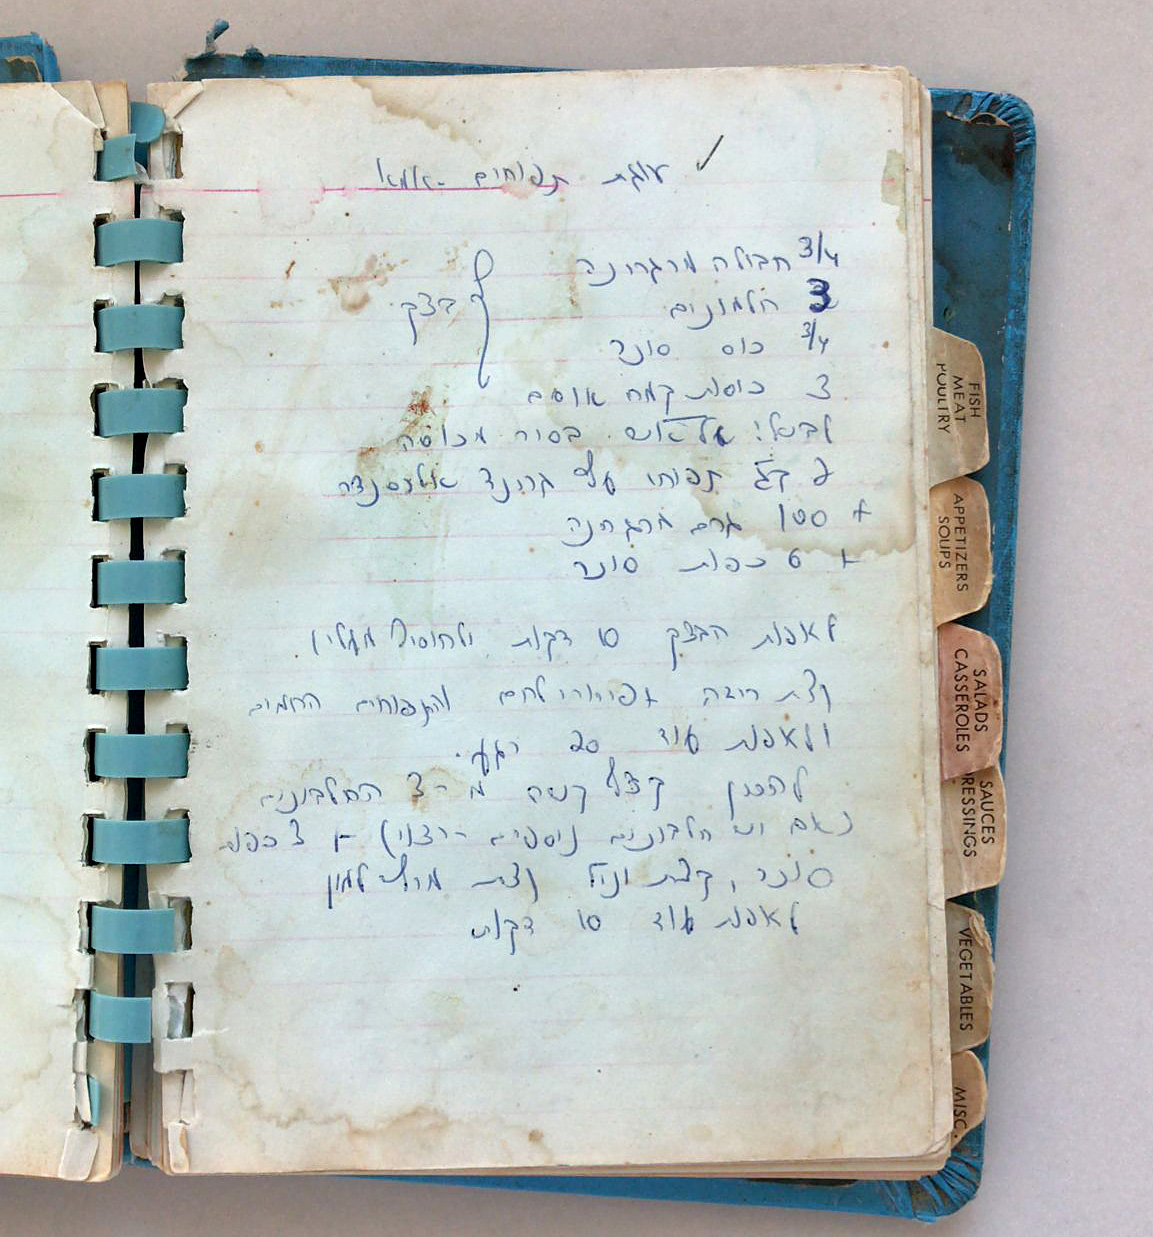 עוגת תפוחים - אמא
3/4 חבילה מרגרינה
3 חלמונים
בצק
3/4 כוס סוכר
3 כוסות קמח אוסם
לבשל: על אש בסיר מכוסה
2 קג תפוחי עץ גרונד אלכסנדר
+ 100 גרם מרגרינה
+ 6 כפות סוכר
לאפות הבצק 10 דקות ולהוסיף מעליו
קצת ריבה פירורי לחם והתפוחים החמים
ולאפות עוד 20 רגע.
להכין קצף קשה מ-3 החלבונים
(אם יש חלבונים נוספים - רצוי) + 3 כפות
סוכר, קצת וניל קצת מיץ לימון
לאפות עוד 10 דקות
FISH
MEAT
POULTRY
APPETIZERS
SOUPS
SALADS
CASSEROLES
SAUCES
DRESSINGS
VEGETABLES
MISC.